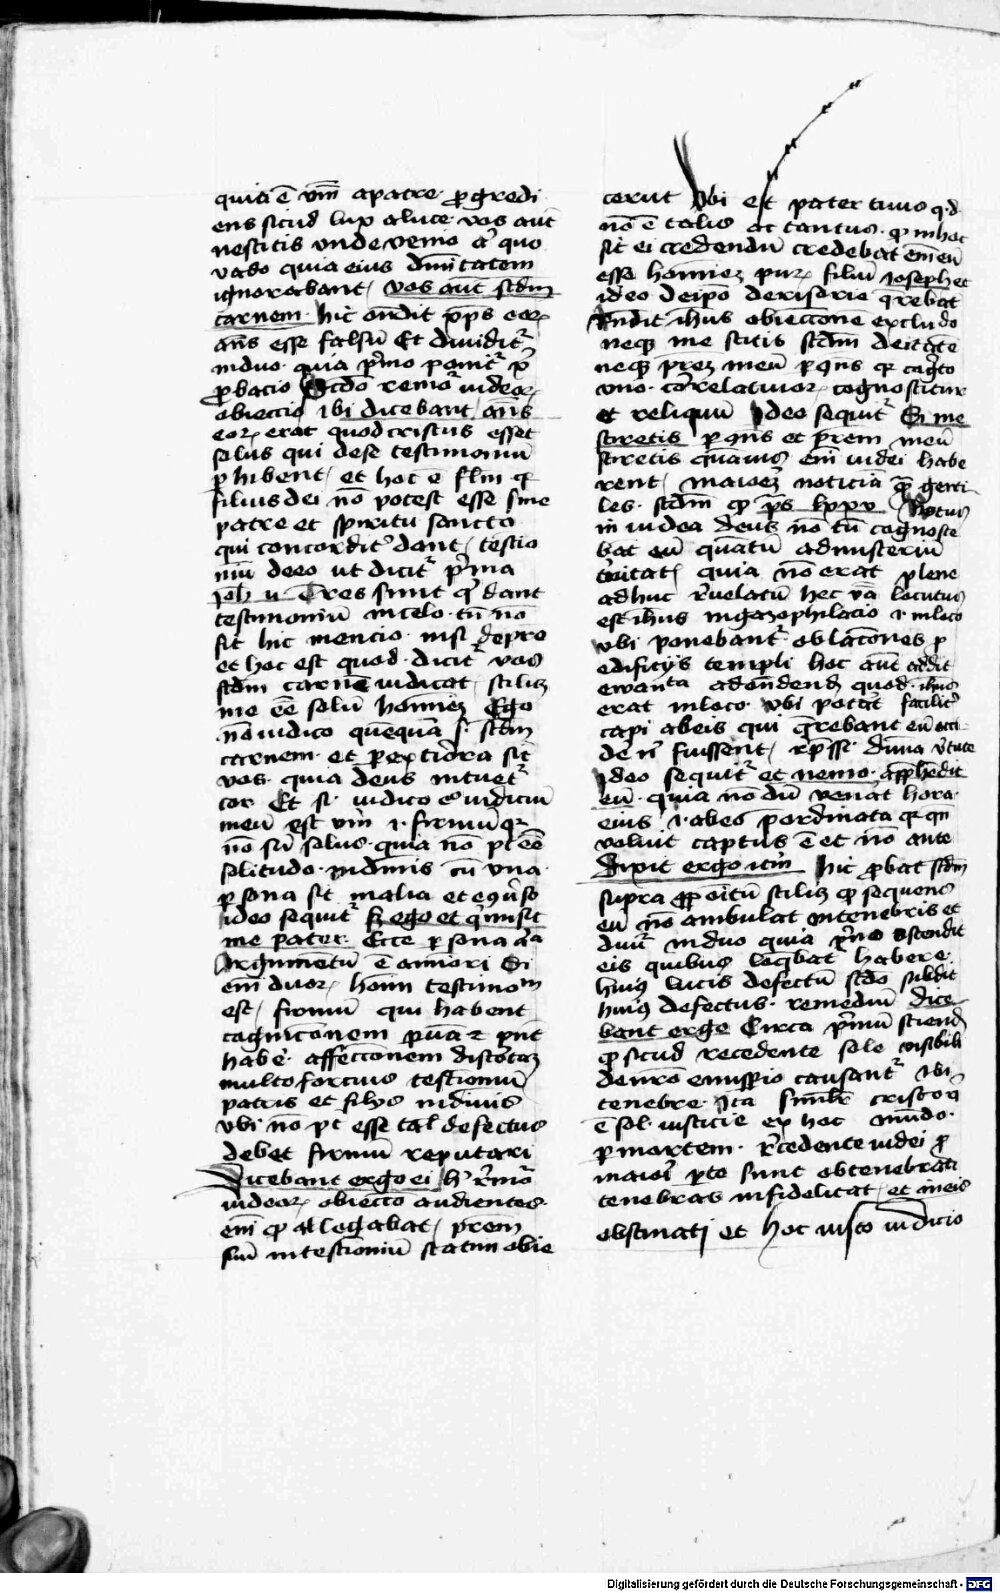 quia ē vm̄ apatre · ꝓgredi
ens sicud lux a luce · vos aūt
nescitis vnde venio aᷓ quo
vado quia eius diui͞tatem
ignorabant / vos aūt scd̄m
carnem · hic on̄dit p̄ꝑs eoꝝ
an̄s esse falsū Et diuiditᷣ
in duo · quia p̄mo ponitᷣ
ꝓbacio Scd̄o remoᷣ iudeoꝝ
obieccio ibi dicebant / an̄s
eoꝝ erat quod cristus esset
solus qui de se testimoniū
ꝑhibent / et hoc ē flm̄ qꝛ
filius dei nō potest esse sine
patre et spiritu sancto
qui concorditᷣ dant / testio
niū deo ut dicitᷣ pᷓma
Joh̄ v Tres sunt qᷓ dant
testimoniū in celo · tn̄ nō
fit hic mencio nisi de pre
et hoc est quod · dicitᷣ vos
scd̄m carnē iudicat / scilicꝫ
me eē solū hominē Ego
nō iudico quēquā s · scd̄m
carnem · et ꝑ exteriora sic̄
vos · quia deus intuetᷣ
cor Et si · iudico eº iudiciū
meū est vm̄ · i · firmū qꝛ
nō sū solus · quia nō pt̄ eē
solitudo · in diuinis cū vna
ꝑsona sit in alia et eꝯuerso
ideo sequitᷣ sꝫ ego et qᷓ misit
me pater · Ecce ꝑsona alīa
Argumētū ē a minori Si
eni͞ duoꝝ homīn testimoniū
est / firmū qui habent
cognicōnem puā ⁊ pn̄t
habē · affeccōnem distortā
multo forcius testīoniū
patris et filij in diuinis
vbi nō pt̄ esse tal defectus
debet firmū reputari
Dicebant ergo ei hᷣ remoᷣ
iudeoꝝ obieccō audientes
eni͞ ꝙ allegabat / prem̄
suū in testīoniū statim obie
cerūt vbi est pater tuus q · d ·
nō ē talis ac tantus · ꝙ in hoc
sit ei credendū credebāt em̄ eū
esse hominē purū filiū ioseph et
ideo de ip̄o derisorie q̄rebāt
Rn̄dit ih̄us obieccōnē excludēdo
neqꝫ me scitis scd̄m deitatē
neqꝫ prēm meū ꝑ qn̄s qꝛ cogᷓto
vno · correlatiuoꝝ cognoscitur
et reliquū Ideo sequitᷣ Si me
sciretis ꝑ qn̄s et prēm meū
sciretis quāuis eni͞ iudei habe
rent / maiorē noticiā qᷓ genti
les · scd̄m ꝙ ps̄ lxxv Notus
in iudea deus nō tn̄ cognosce
bāt eū quātū ad misteriū
trītatis quia nō erat plene
ad huc r̄uelatū hec vᷓba locutus
est ih̄us in gazophilacio · i · in loco
vbi ponebantᷣ oblacōnes ꝓ
edificijs templi hoc aūt addit
ewanta ad on̄dendū quod · ih̄us
erat in loco · vbi potᷣat facilitᷣ
capi ab eis qui q̄rebant eū occi
de nisi fuissent / rep̄ssi diuina v̓tute
Ideo sequitᷣ et nemo · appᷓhēdit
eū · quia nōdū venᷓat hora ·
eius · i · ab eo p̄ordinata qꝛ qn̄
voluit captus ē et nō ante
Dixit ergo itm̄ hic ꝓbat scd̄m
supra ꝓpōitū scilicꝫ ꝙ sequens
eū nō ambulat in tenebris et
diuitᷣ in duo quia pᷓmo oscendit
eis quibus loqᷓbat habere ·
huiꝰ lucis defectū scd̄o subdit
huiꝰ defectus · remediū dice
bant ergo Circa pᷓmū sciendū
ꝙ sicud recedente sole visibili
tenebre · ita similr̄ cristoqꝫ
ē sol · iusticie ex hoc mūdo ·
ꝑ mortem · recedente iudei ꝓ
maioᷓi pte sunt obtenebrati
tenebras infidelitatis / et in eis
obstinati et hoc iusto iudicio